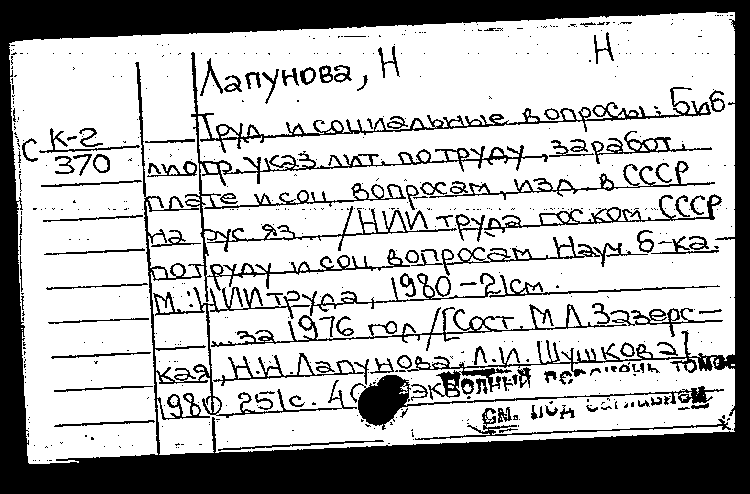 Лапунова, Н Н
С К-2
370
Труд и социальные вопросы: Биб-
лиогр. указ. лит. по труду, заработ.
плате и соц. вопросам, изд. в СССР
на рус. яз... /НИИ труда гос. ком. СССР
по труду и соц. вопросам. Науч. б-ка.-
М.: НИИ труда, 1980-21см.
...за 1976 год/[Сост. М.Л. Зазерс-
кая, Н.Н. Лапунова, Л.И. Шушкова]
1980. 251с. экз
полный перечень томов
см. под заглавной